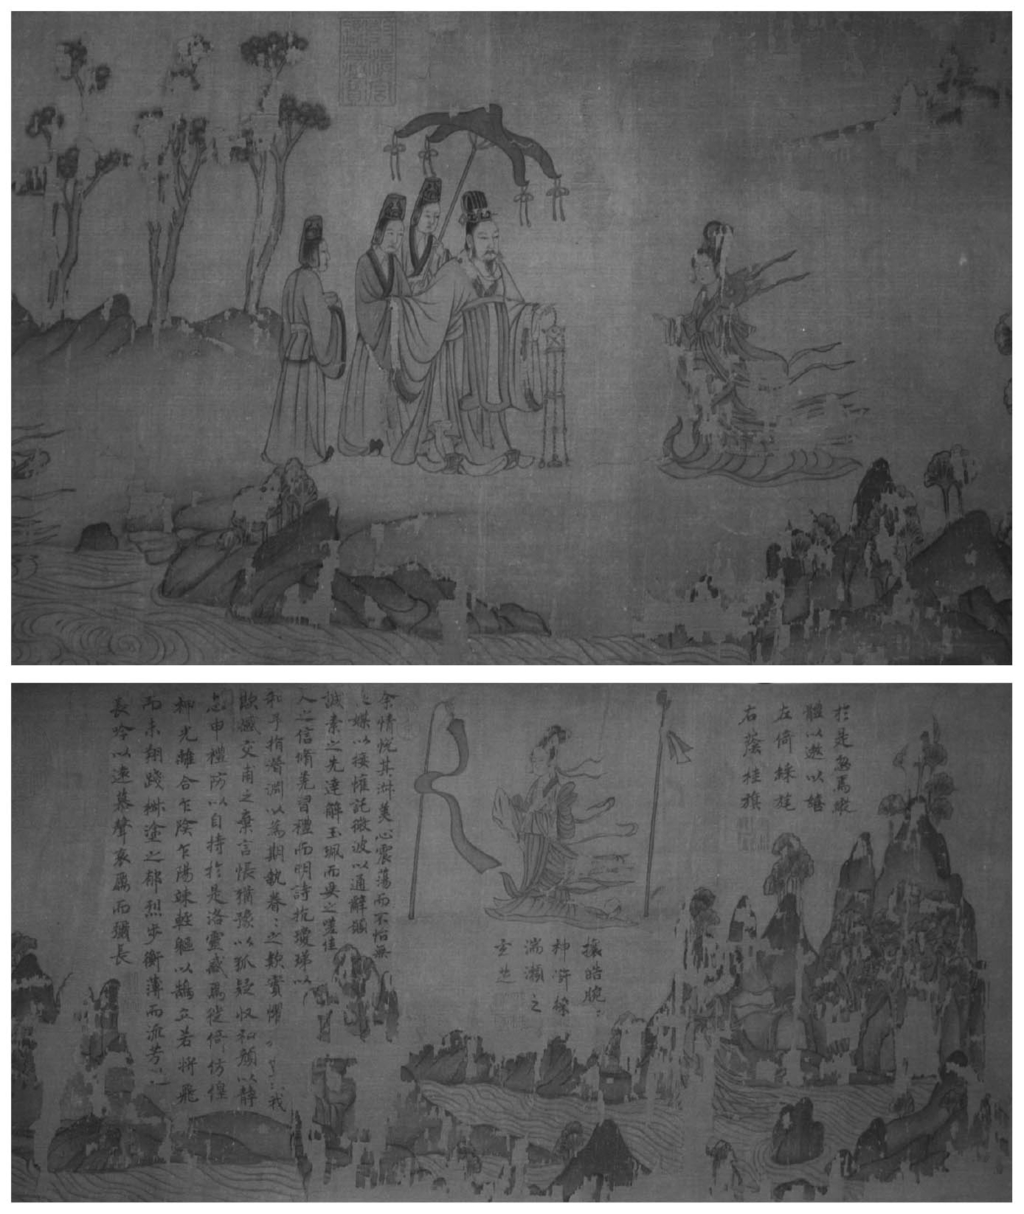 於是忽焉縱
體以遨以嬉
左倚綵旄
右蔭桂旗
攘皓腕
神滸綵
湍瀨之
玄芝
余情悅其淑美心震蕩而不怡無
媒以接懽託微波以通辭願
誠素之先達解玉珮而要之嗟佳
人之信脩羌習禮而明詩抗瓊珶以
和予指潛淵以為期執眷〻之款實懼我
欺感交甫之棄言悵猶豫以狐疑收和顏以靜
志申禮防以自持於是洛靈感焉徙倚仿偟
神光離合乍陰乍陽竦輕軀以鶴立若將飛
而未翔踐椒塗之郁烈步衡薄而流芳
長吟以遠慕聲哀厲而彌長